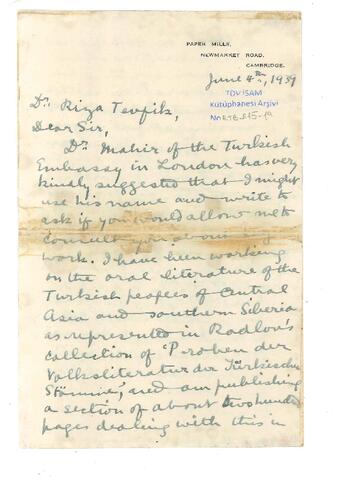 PAPER MILLS,
NEWMARKET ROAD,
CAMBRIDGE.
June 4th, 1939
TDV İSAM
Kütüphanesi Arşivi
No RTB
Dr. Riza Tevfik,
Dear Sir,
Dr. Mahir of the Turkish
Embassy in London has very
kindly suggested that I might
use his name and write to
ask if you would allow me to
consult you about my
work. I have been working
on the oral literature of the
Turkish peoples of Central
Asia and southern Siberia
as represented in Radlov's
collection of 'Proben der
Volksliteratur der Türkischen
Stämme', and am publishing
a section of about two hundred
pages dealing with this in